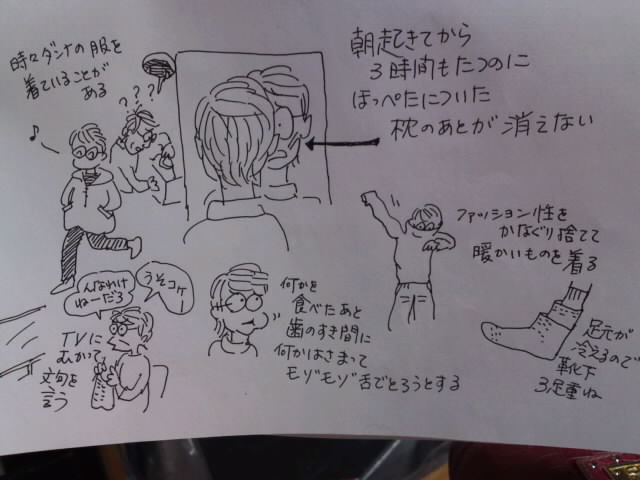 時々ダンナの服を
着ていることが
ある
???
♪
朝起きてから
3時間もたつのに
ほっぺたについた
枕のあとが消えない
ファッション性を
かなぐり捨てて
暖かいものを着る
んなわけ
ねーだろ
うそコケ
TVに
むかって
文句を
言う
何かを
食べたあと
歯のすき間に
何かはさまって
モゾモゾ舌でとろうとする
足元が
冷えるので
靴下
3足重ね